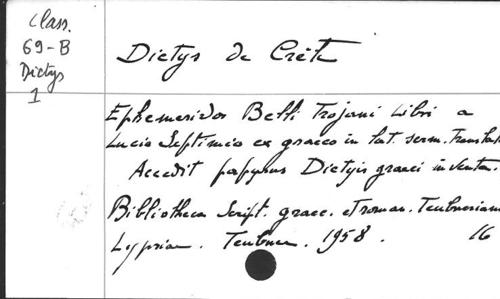 Class.
69-B
Dictys
1
Dictys de Crète
Ephemeridos Belli Trojani Libri a
Lucio Septimio ex graeco in lat. serm. Translati
Accedit papyrus Dictyis graeci inventa.
Bibliotheca Script. graec. et roman. Teubneriana
Lypsiae. Teubner. 1958. 16